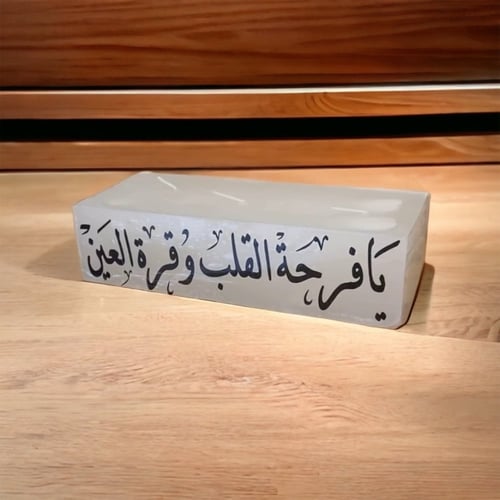 يا فرحة القلب وقرة العين